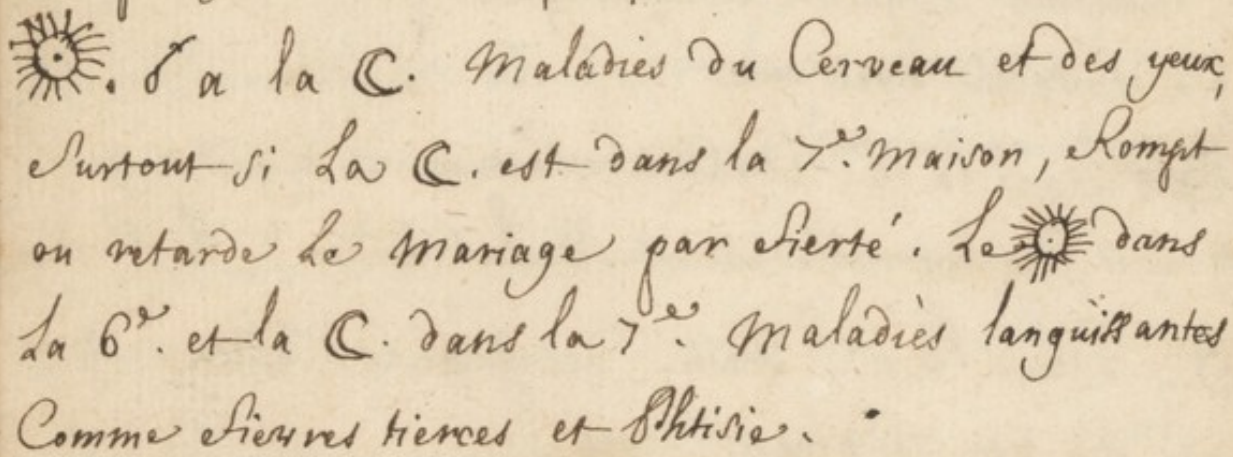 ☉. ☌ a la ☾. Maladies du Cerveau et des yeux,
Surtout si La ☾. est dans la 7e. maison, Rompt
ou retarde Le Mariage par fierté. Le ☉ dans
La 6e. et la ☾. dans la 7e. Maladiès languissantes
Comme fievres tierces et Phtisie.